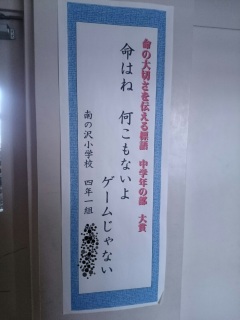 命の大切さを伝える標語　中学年の部　大賞
命はね　何こもないよ
ゲームじゃない
南の沢小学校　四年一組